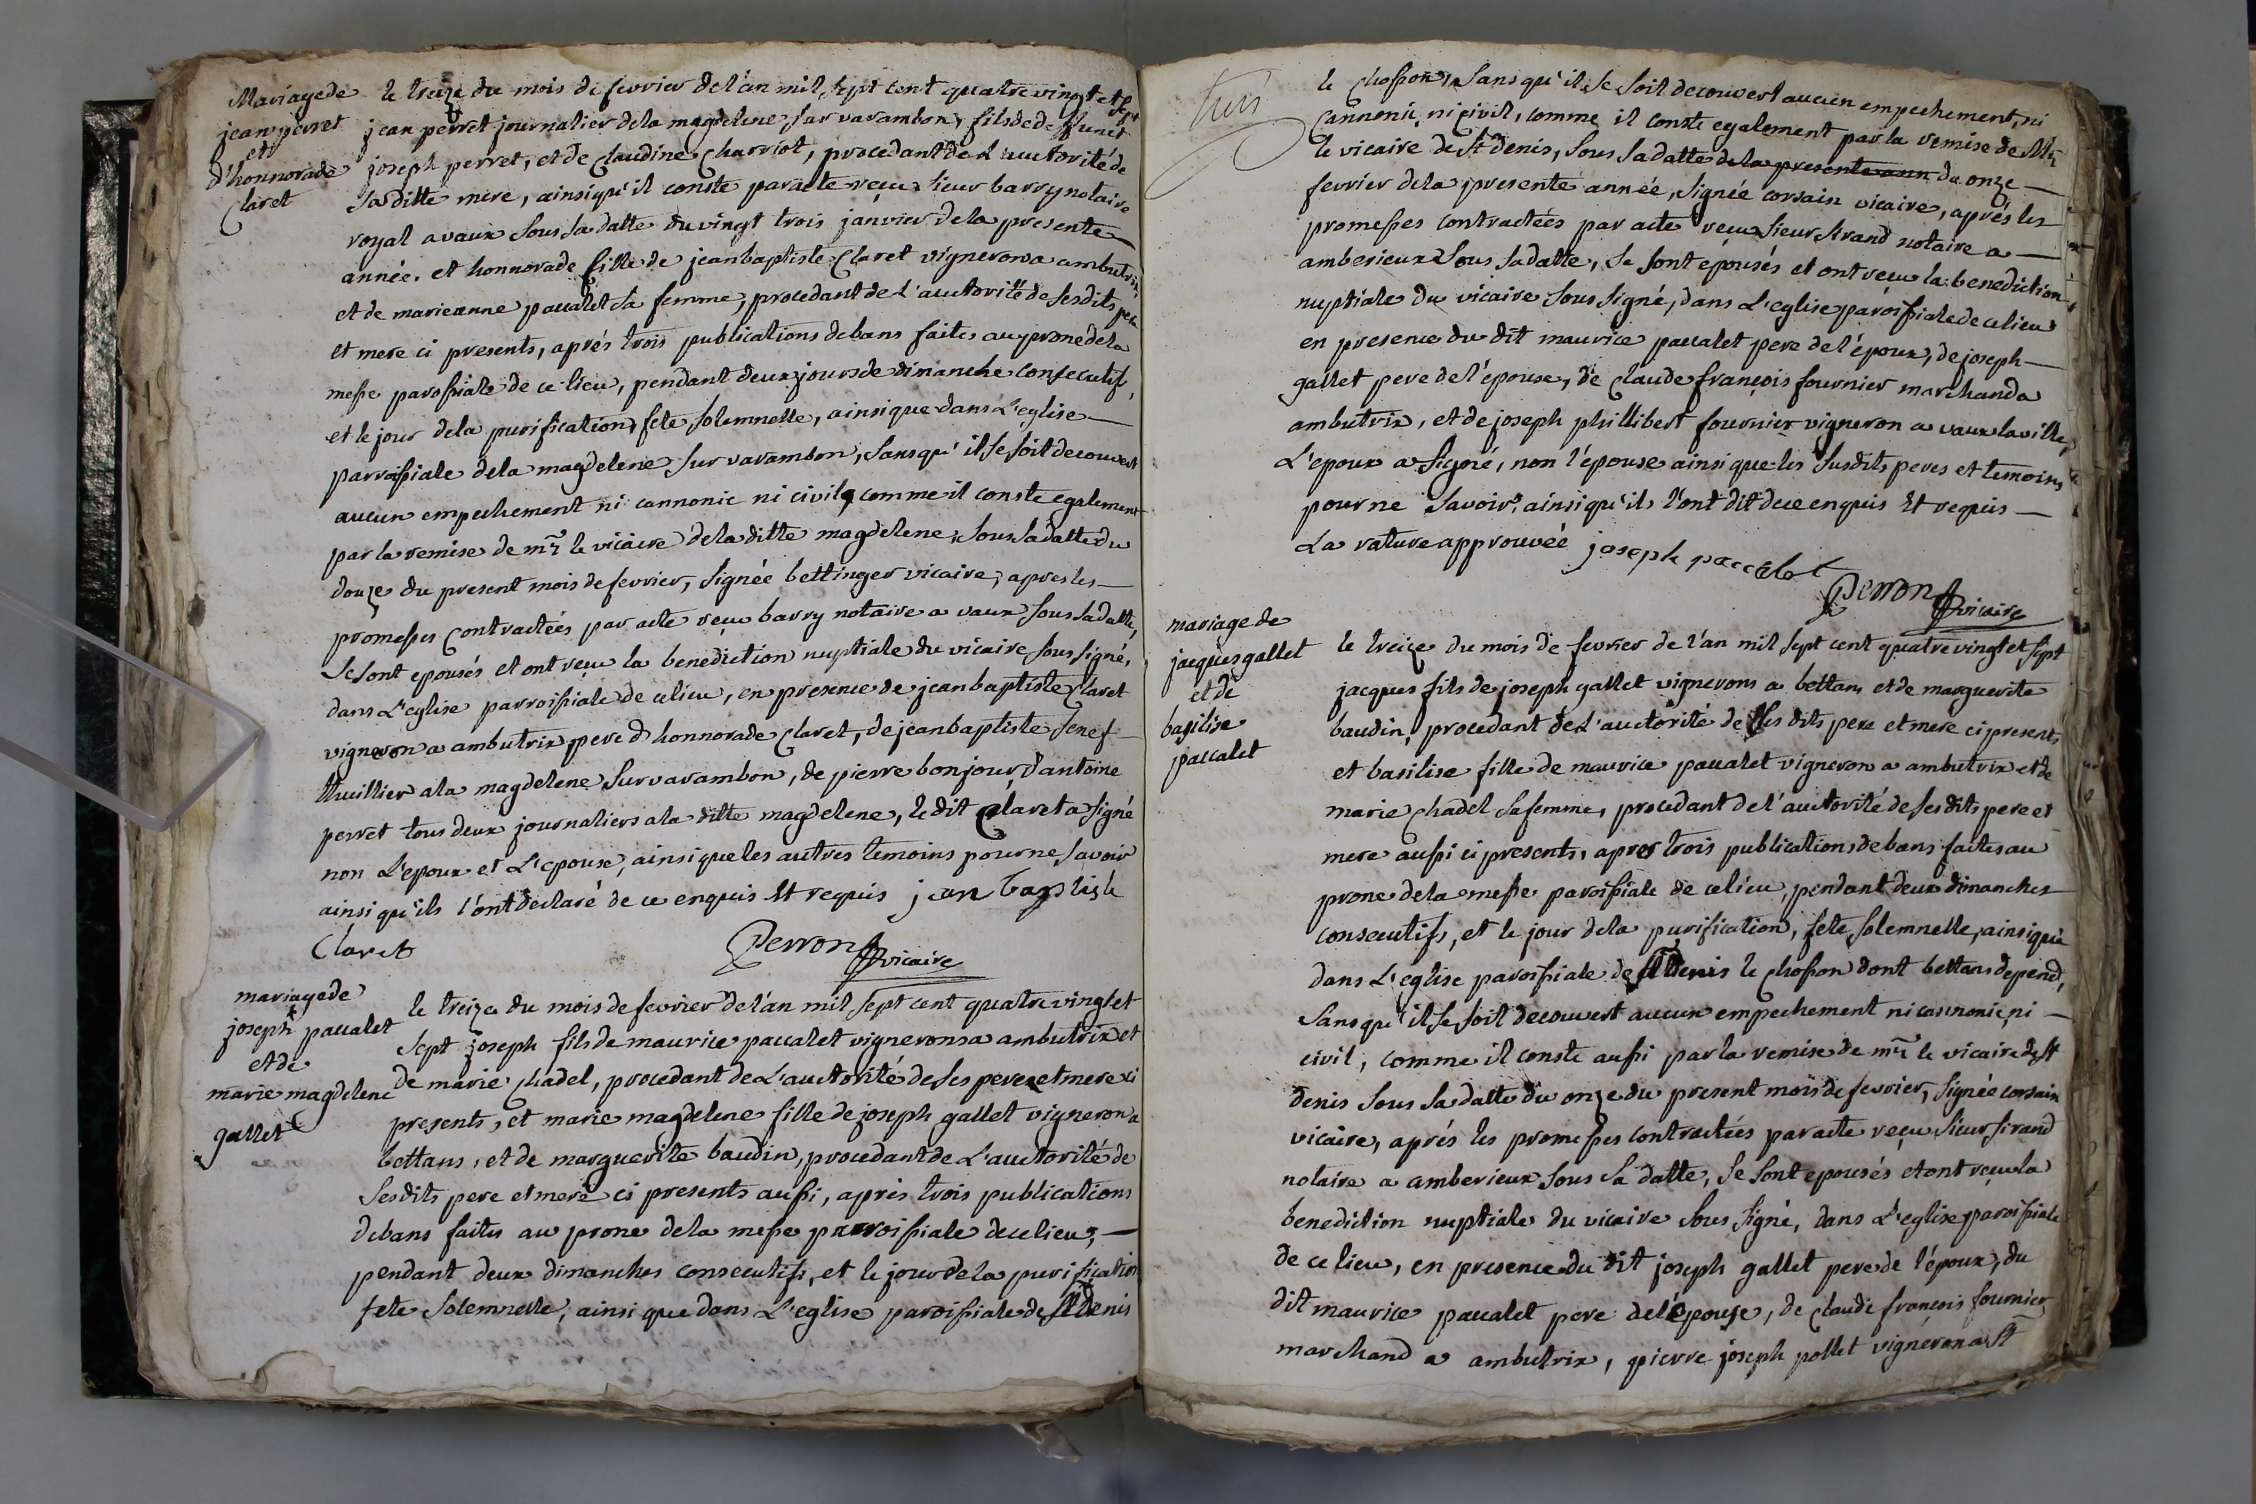 Mariage de
jean perret
et
d'honnorade
Claret
le treize du mois de fevrier de l'an mil sept cent quatre vingt et sept
jean perret journalier de la magdelene sur varambon, fils de deffunct
joseph perret, et de Claudine Charriot, procedant de L'auctorité de
saditte mere, ainsi qu'il conste par acte reçu sieur barry notaire
royal a vaux sous sa datte du vingt trois janvier de la presente
année. et honnorade fille de jean baptiste Claret vigneron a ambutrix,
et de marieanne paccalet sa femme, procedant de L'auctorité de sesdits pere
et mere ci presents, aprés trois publications de bans faites au prone de la
messe paroissiale de ce lieu, pendant deux jours de dimanche consecutifs,
et le jour de la purification fete solemnelle, ainsi que dans L'eglise
parroissiale de la magdelene sur varambon, sans qu'il se soit decouvert
aucun empechement ni cannonic ni civil, comme il conste egalement
par la remise de mr le vicaire de la ditte magdelene, sous la datte du
douze du present mois de fevrier, signée bettinger vicaire, apres les
promesses contractées par acte reçu barry notaire a vaux sous sa datte,
se sont epousés et ont reçu la benediction nuptiale du vicaire sous signé,
dans L'eglise parroissiale de ce lieu, en presence de jean baptiste Claret
vigneron a ambutrix pere d'honnorade Claret, de jean baptiste senef
thuillier a la magdelene sur varambon, de pierre bonjour, d'antoine
perret tous deux journaliers a la ditte magdelene, le dit Claret a signé
non L'epoux et L'epouse, ainsi que les autres temoins pour ne savoir
ainsi qu'ils l'ont declaré de ce enquis et requis jean baptiste
Claret
Perron vicaire
mariage de
joseph paccalet
et de
marie magdelene
gallet
le treize du mois de fevrier de l'an mil sept cent quatre vingt et
sept joseph fils de maurice paccalet vigneron a ambutrix et
de marie Chadel, procedant de L'auctorité de ses pere et mere ci
presents, et marie magdelene fille de joseph gallet vigneron a
bettans, et de marguerite baudin, procedant de L'auctorité de
sesdits pere et mere ci presents aussi, aprés trois publications
de bans faites au prone de la messe parroissiale de ce lieu,
pendant deux dimanches consecutifs, et le jour de la purification
fete solemnelle, ainsi que dans L'eglise paroissiale de st denis
le Chosson, sans qu'il se soit decouvert aucun empechement, ni
cannonic, ni civil, comme il conste egalement par la remise de Mr
le vicaire de St denis, sous sa datte de la presente ann du onze
fevrier de la presente année, signée corsain vicaire, aprés les
promesses contractées par acte reçu sieur sirand notaire a
amberieux sous sa datte, se sont épousés et ont reçu la benediction
nuptiale du vicaire sous signé, dans L'eglise paroissiale de ce lieu
en presence du dit maurice paccalet pere de l'époux, de joseph
gallet pere de l'épouse, de Claude françois fournier marchand a
ambutrix, et de joseph phillibert fournier vigneron a vaux la ville,
L'epoux a signé, non l'épouse ainsi que les susdits peres et temoins
pour ne savoir, ainsi qu'ils l'ont dit de ce enquis et requis
La rature approuvée joseph paccalet
Perron vicaire
mariage de
jacques gallet
et de
basilise
paccalet
le treize du mois de fevrier de l'an mil sept cent quatre vingt et sept
jacques fils de joseph gallet vigneron a bettans et de marguerite
baudin, procedant de L'auctorité de ses dits pere et mere ci presents
et basilise fille de maurice paccalet vigneron a ambutrix et de
marie Chadel sa femme, procedant de l'auctorité de ses dits pere et
mere aussi ci presents, apres trois publications de bans faites au
prone de la messe paroissiale de ce lieu, pendant deux dimanches
consecutifs, et le jour de la purification, fete solemnelle, ainsi que
dans L'eglise paroissiale de st denis le Chosson dont bettans depend,
sans qu'il se soit decouvert aucun empechement ni cannonic, ni
civil, comme il conste aussi par la remise de mr le vicaire de st
denis sous sa datte du onze du present mois de fevrier, signée corsain
vicaire, aprés les promesses contractées par acte reçu sieur sirand
notaire a amberieux sous sa datte, se sont epousés et ont reçu la
benediction nuptiale du vicaire sous signé, dans L'eglise paroissiale
de ce lieu, en presence du dit joseph gallet pere de l'époux, du
dit maurice paccalet pere de l'épouse, de Claude françois fournier
marchand a ambutrix, pierre joseph pollet vigneron a st